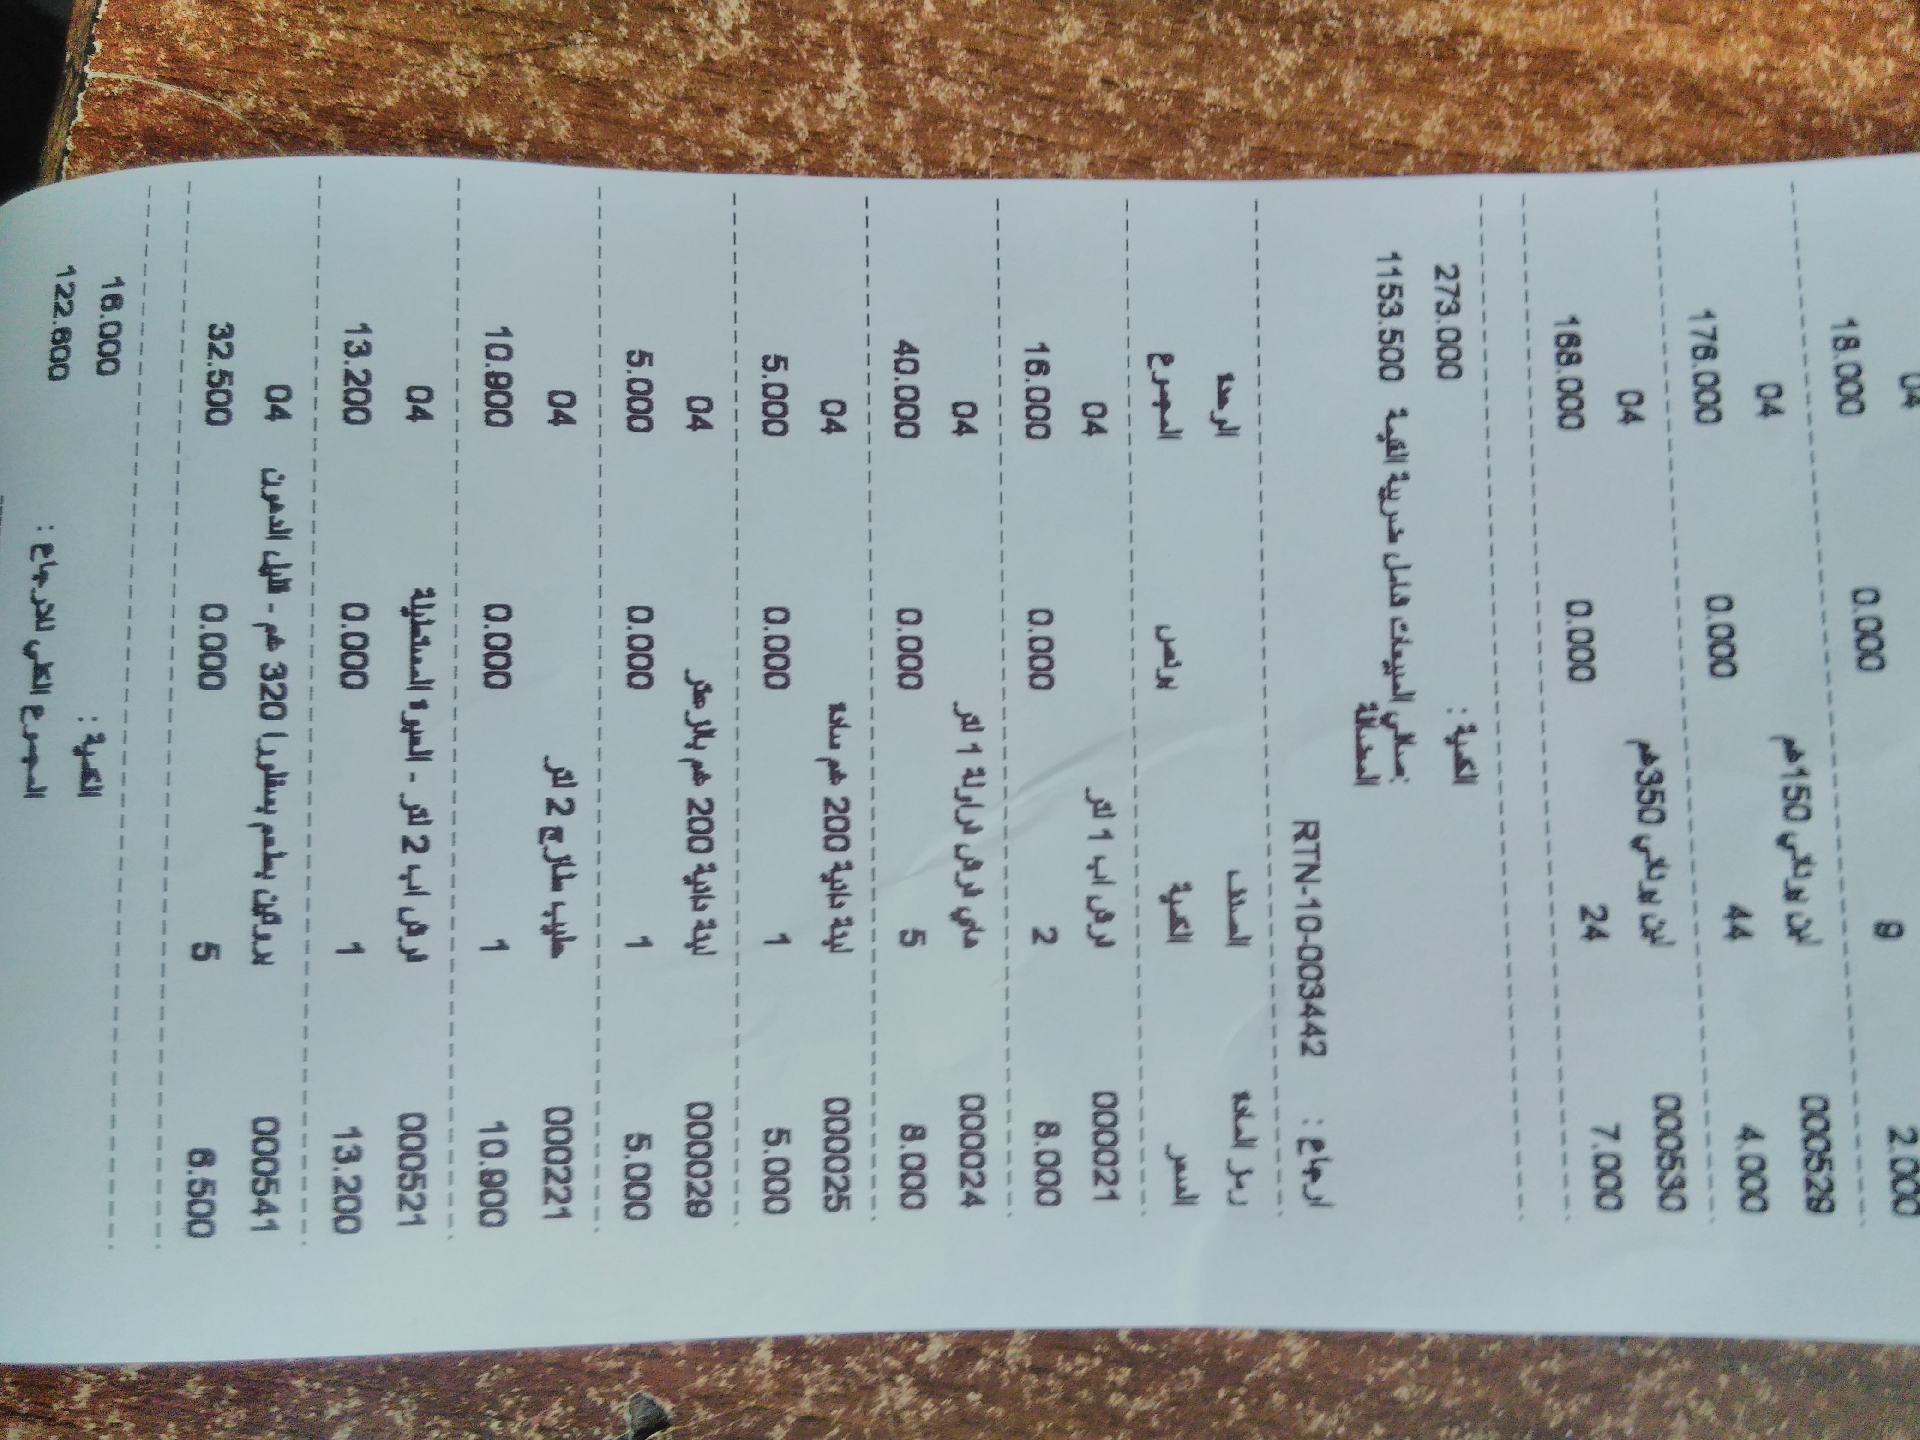 04
18.000 0.000 9 2.000
04 لبن بولكي 150غم 000529
176.000 0.000 44 4.000
04 لبن بولكي 350غم 000530
168.000 0.000 24 7.000
273.000 الكمية :
1153.500 صافي المبيعات شامل ضريبة القيمة المضافة :
ارجاع : RTN-10-003442
رمز المادة الصنف الوحدة
السعر الكمية بونص المجموع
04 فرش اب 1 لتر 000021
16.000 0.000 2 8.000
04 000024
40.000 0.000 5 8.000
04 لبنة دانية 200 غم سادة 000025
5.000 0.000 1 5.000
04 لبنة دانية 200 غم بالزعتر 000028
5.000 0.000 1 5.000
04 حليب طازج 2 لتر 000221
10.900 0.000 1 10.900
04 فرش اب 2 لتر - العبوة المستطيلة 000521
13.200 0.000 1 13.200
04 320 غم - قليل الدهون 000541
32.500 0.000 5 6.500
16.000 الكمية :
122.600 المجموع الكلي للارجاع :